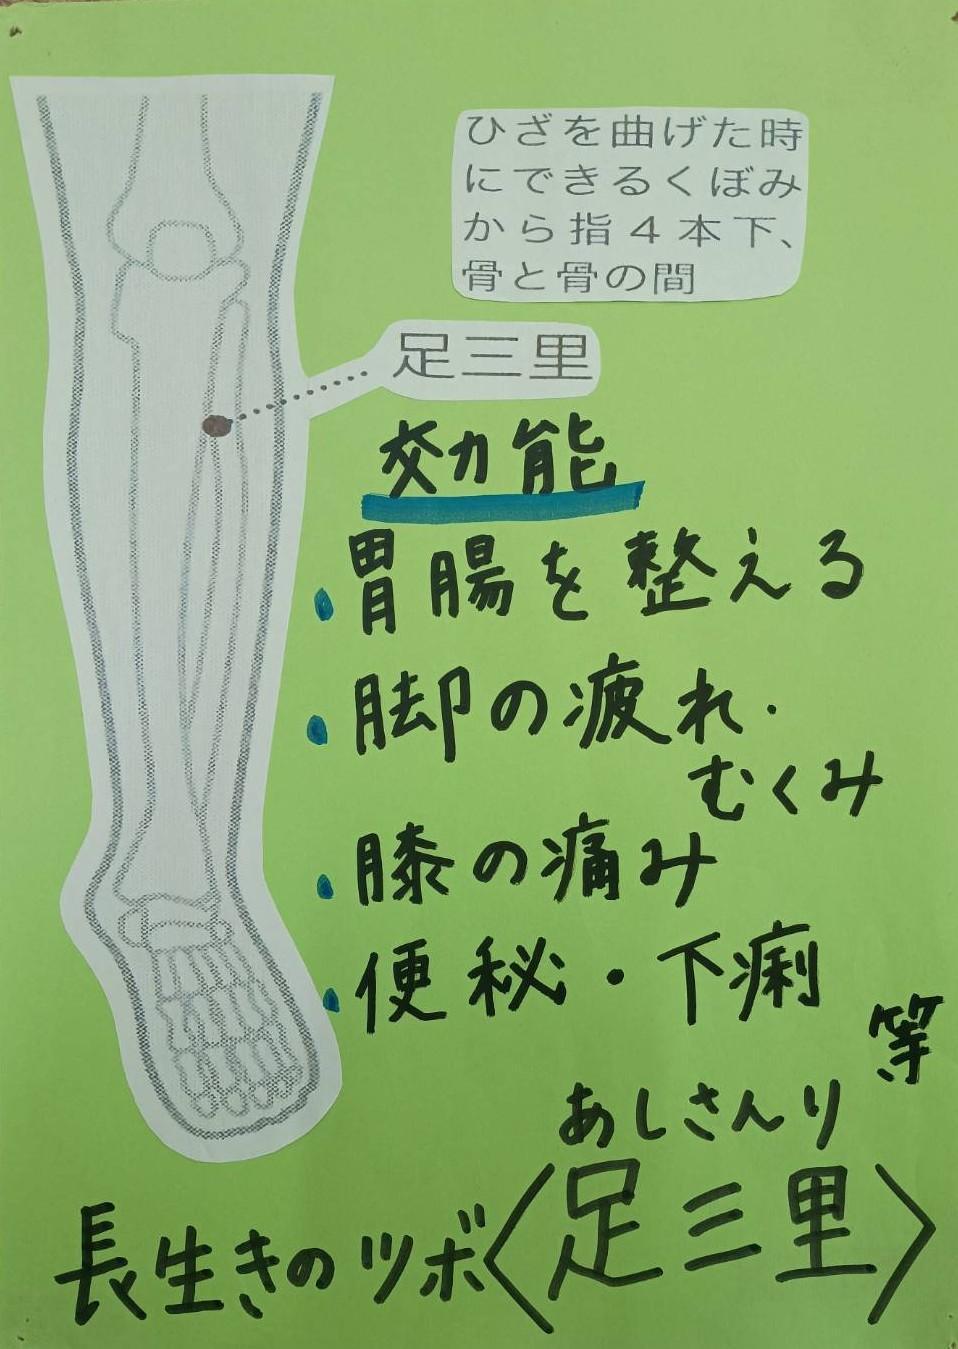 ひざを曲げた時
にできるくぼみ
から指4本下、
骨と骨の間
足三里
効能
・胃腸を整える
・脚の疲れ・
むくみ
・膝の痛み
・便秘・下痢
等
あしさんり
長生きのツボ〈足三里〉